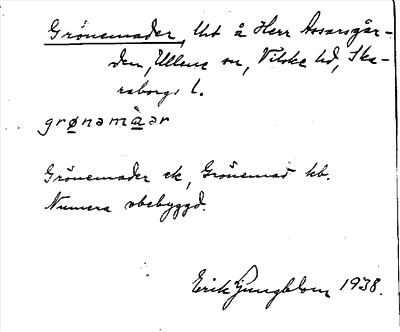 Grönemader, Ut å Herr Assarsgår-
den, Ullene sn, Vilske hd, Ska-
raborgs l.
grønəmàər
Grönemader ek, Grönemad kb.
Numera obebyggd.
Erik Ljungblom 1938.